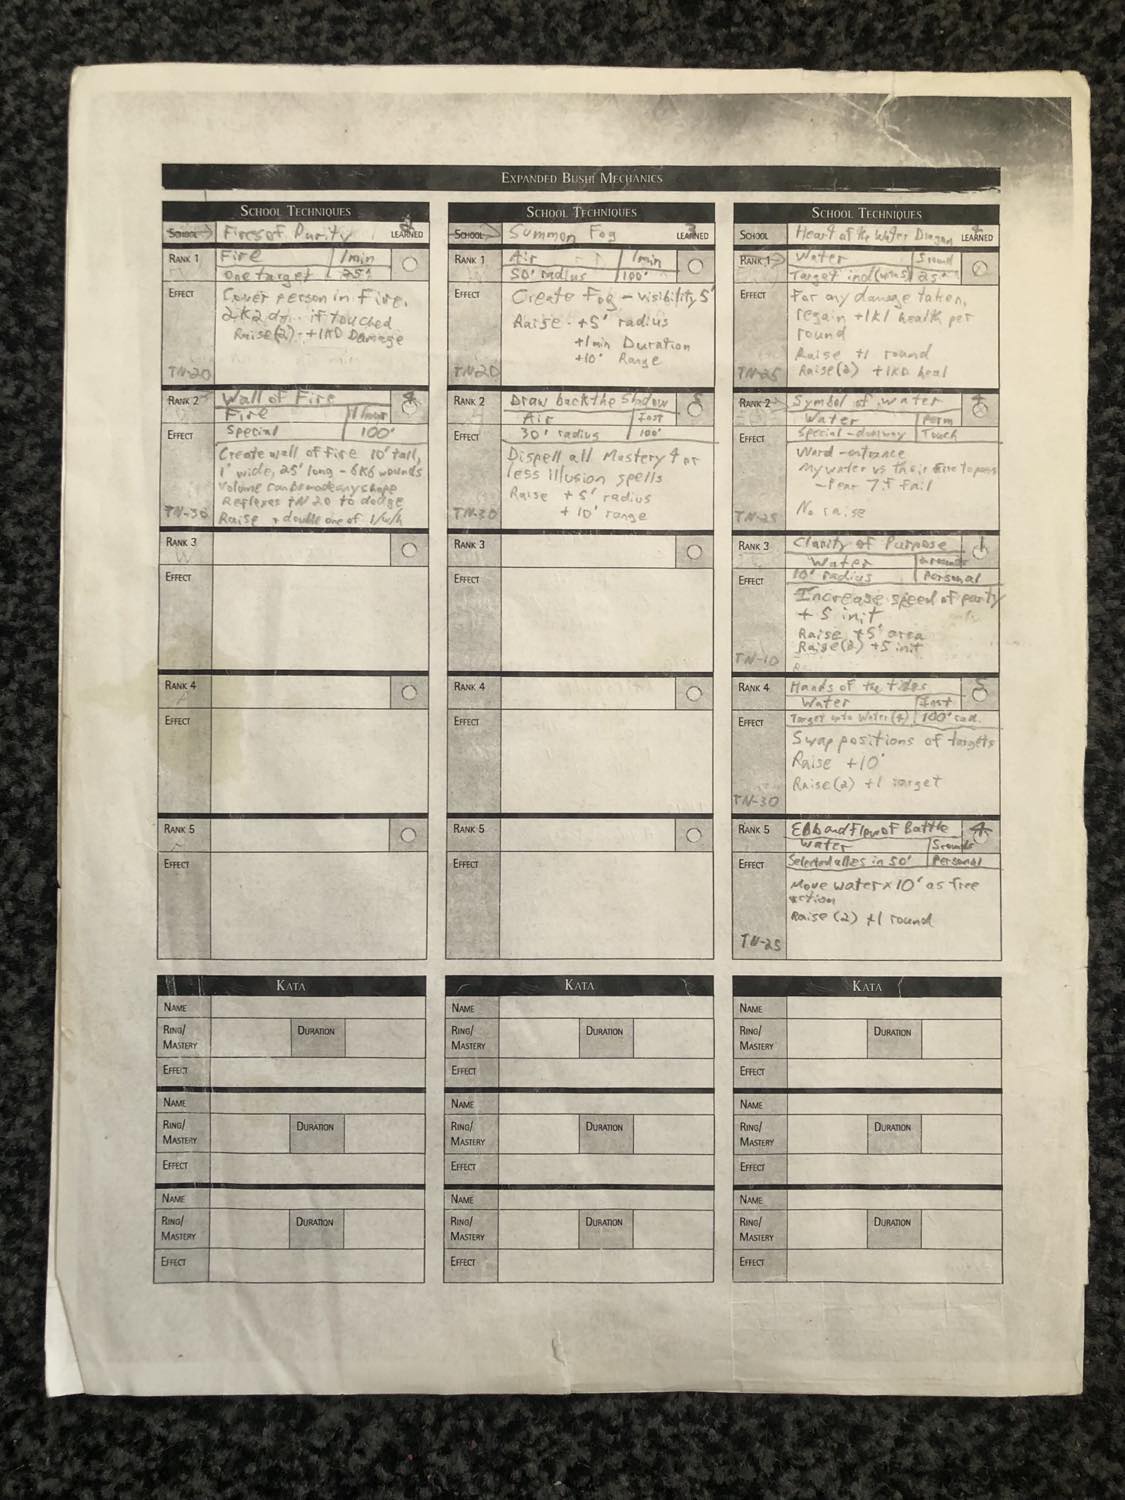 EXPANDED BUSHI MECHANICS
SCHOOL TECHNIQUES
SCHOOL Fires of Purity LEARNED
RANK 1 Fire 1 min
One target 25'
EFFECT Cover person in Fire,
2K2 if touched
Raise(2) - +1KD Damage
TN-20
RANK 2 Wall of Fire 4
Fire 1 hour
EFFECT Special 100'
Create wall of fire 10' tall,
1' wide, 25' long - 6K6 wounds
Volume can be made any shape
Reflexes TN 20 to dodge
TN-30 Raise + double one of l/w/h
RANK 3
EFFECT
RANK 4
EFFECT
RANK 5
EFFECT
SCHOOL TECHNIQUES
SCHOOL Summon Fog 3 LEARNED
RANK 1 Air 1 min
50' radius 100'
EFFECT Create Fog - visibility 5'
Raise - +5' radius
+1 min Duration
+10' Range
TN-20
RANK 2 Draw back the Shadow 5
Air Inst
EFFECT 30' radius 100'
Dispell all Mastery 4 or
less illusion spells
Raise +5' radius
TN-30 + 10' range
RANK 3
EFFECT
RANK 4
EFFECT
RANK 5
EFFECT
SCHOOL TECHNIQUES
SCHOOL Heart of the Water Dragon 4 LEARNED
RANK 1 Water 5 round
Target ind 25'
EFFECT For any damage taken,
regain +1K1 health per
round
Raise +1 round
TN-25 Raise(2) +1KD heal
RANK 2 Symbol of water 4
Water Perm
EFFECT Special - doorway Touch
Word - entrance
My water vs their Fire to pass
- Fear 7 if fail
TN-25 No raise
RANK 3 Clarity of Purpose 1
Water rounds
EFFECT 10' radius Personal
Increase speed of party
+ 5 init
Raise +5' area
TN-10 Raise(2) +5 init
RANK 4 Hands of the tides 5
Water Inst
EFFECT Target upto Water(4) 100' rad.
Swap positions of targets
Raise +10'
Raise(2) +1 target
TN-30
RANK 5 Ebb and Flow of Battle 4
Water 5 rounds
EFFECT Selected allies in 50' Personal
Move water x 10' as free
action
Raise (2) +1 round
TN-25
KATA
NAME
RING/ DURATION
MASTERY
EFFECT
NAME
RING/ DURATION
MASTERY
EFFECT
NAME
RING/ DURATION
MASTERY
EFFECT
KATA
NAME
RING/ DURATION
MASTERY
EFFECT
NAME
RING/ DURATION
MASTERY
EFFECT
NAME
RING/ DURATION
MASTERY
EFFECT
KATA
NAME
RING/ DURATION
MASTERY
EFFECT
NAME
RING/ DURATION
MASTERY
EFFECT
NAME
RING/ DURATION
MASTERY
EFFECT